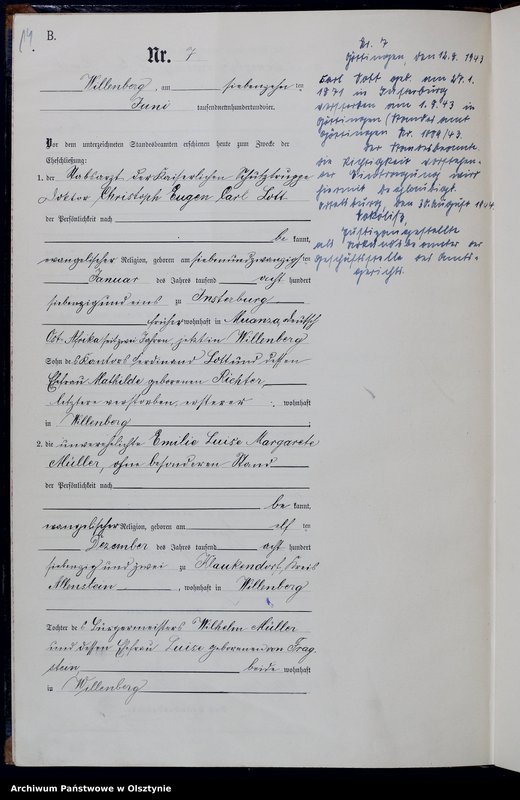 14
B.
Nr. 7
Willenberg, am siebenzehn ten
Juni tausendneunhundertundvier.
Vor dem unterzeichneten Standesbeamten erschienen heute zum Zwecke der
Eheschließung:
1. der Stabsarzt der Kaiserlichen Schutztruppe
Doktor Christoph Eugen Carl Lott
der Persönlichkeit nach
be kannt,
evangelischer Religion, geboren am siebenundzwanzigsten
Januar des Jahres tausend acht hundert
siebenzigundeins zu Insterburg
früher wohnhaft in Muanza, deutsch
Ost-Afrika seit zwei Jahren, jetzt in Willenberg
Sohn des Kantors Ferdinand Lott und dessen
Ehefrau Mathilde geborenen Richter,
letztere verstorben, ersterer wohnhaft
in Willenberg
2. die unverehelichte Emilie Luise Margarete
Müller, ohne besonderen Stand
der Persönlichkeit nach
be kannt,
evangelischer Religion, geboren am elf ten
Dezember des Jahres tausend acht hundert
siebenzig und zwei zu Klaukendorf, Kreis
Allenstein, wohnhaft in Willenberg
Tochter des Bürgermeisters Wilhelm Müller
und dessen Ehefrau Luise geborenen von Frag
stein beide wohnhaft
in Willenberg
Nr. 7
Göttingen, den 12.9.1943
Carl Lott geb. am 27.1.
1871 in Insterburg
verstorben am 1.9.43 in
Göttingen (Standesamt
Göttingen Nr. 1099/43.
Der Standesbeamte.
die Richtigkeit vorstehen-
der Übertragung wird
hiermit beglaubigt.
den 30. August 1944
Justizangestellte
als Urkundsbeamter der
Geschäftsstelle des Amts-
gerichts.
Archiwum Państwowe w Olsztynie